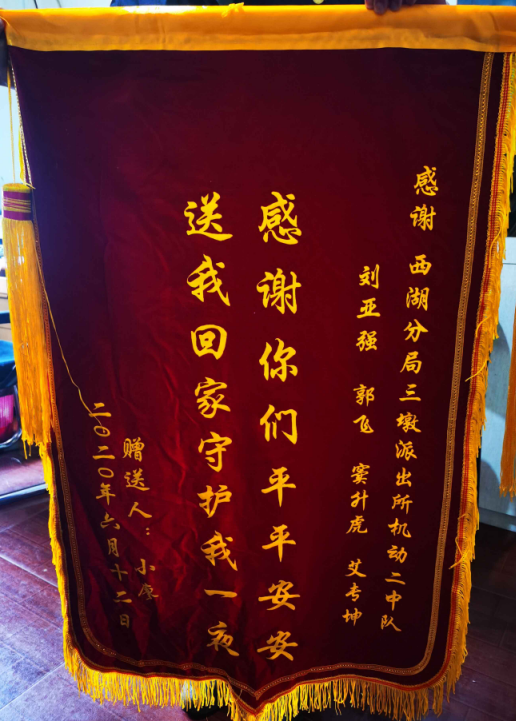 感谢 西湖分局三墩派出所机动二中队
刘亚强 郭飞 窦升虎 艾专坤
感谢你们平平安安
送我回家守护我一夜
赠送人：小康
二〇二〇年六月十二日